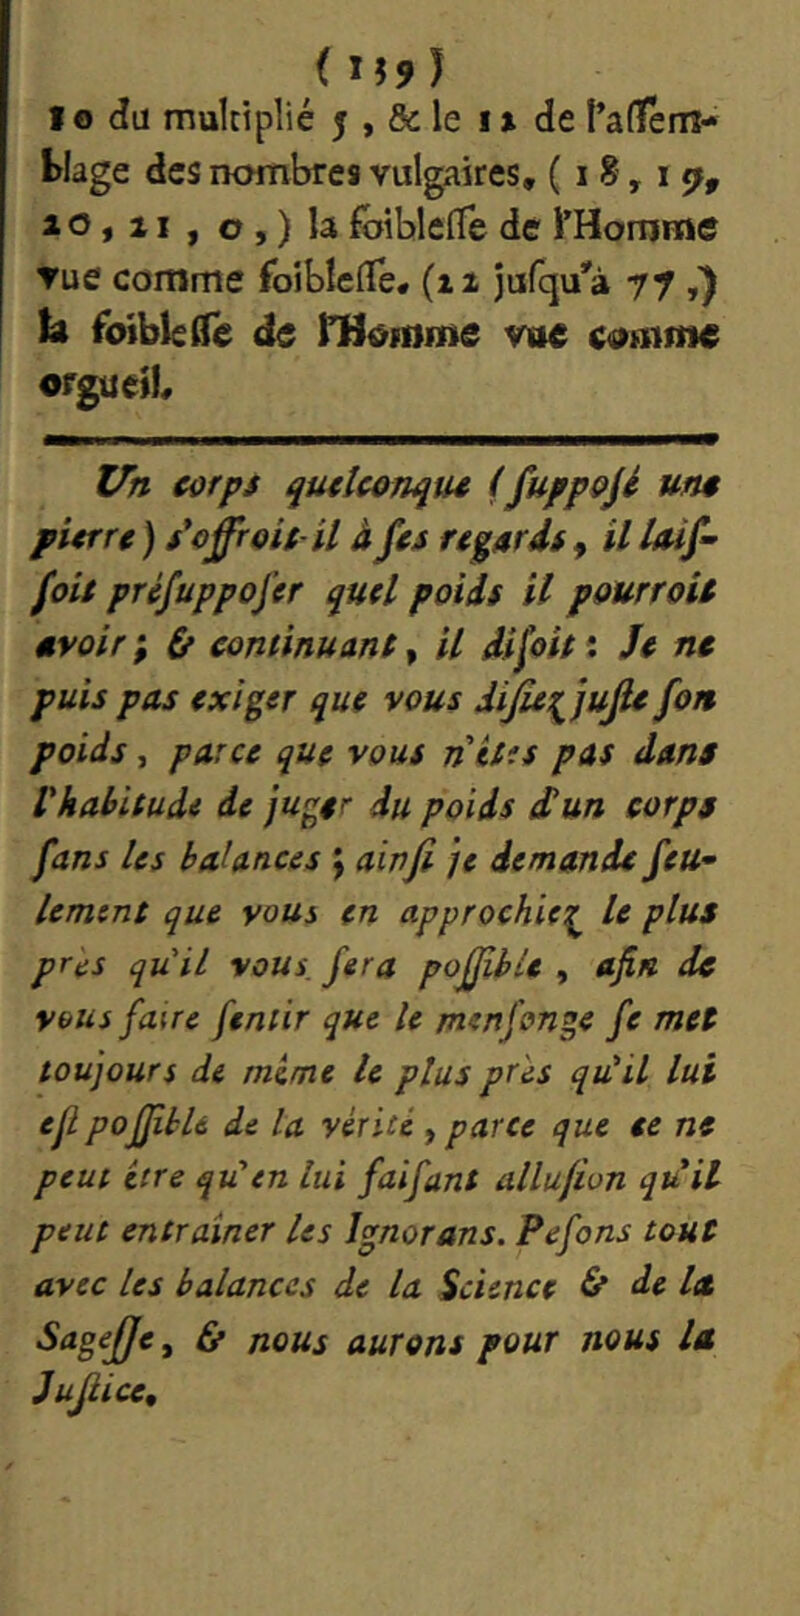 (139)
10 du multiplié 5, & le 12 de l'aſſem-
blage des nombres vulgaires, (18, 19,
20, 21, 0,) la foibleſſe de l'Homme
vue comme foibleſſe. (22 juſqu'à 77,)
la foibleſſe de l'Homme vue comme
orgueil.
Un corps quelconque (ſuppoſé une
pierre) s'offroit-il à ſes regards, il laiſ-
ſoit préſuppoſer quel poids il pourroit
avoir; & continuant, il diſoit: Je ne
puis pas exiger que vous diſiez juſte ſon
poids, parce que vous n'êtes pas dans
l'habitude de juger du poids d'un corps
ſans les balances; ainſi je demande ſeu-
lement que vous en approchiez le plus
près qu'il vous ſera poſſible, afin de
vous faire ſentir que le menſonge ſe met
toujours de même le plus près qu'il lui
eſt poſſible de la vérité, parce que ce ne
peut être qu'en lui faiſant alluſion qu'il
peut entraîner les Ignorans. Peſons tout
avec les balances de la Science & de la
Sageſſe, & nous aurons pour nous la
Juſtice.